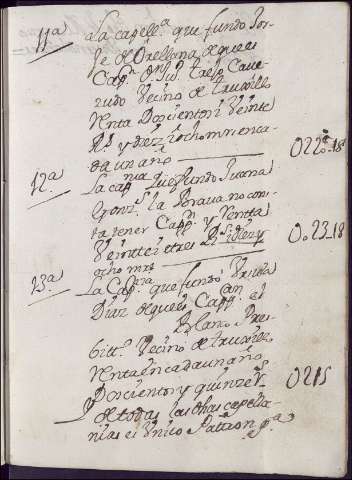 11ª La capellª que fundo Jor
Je de Orellana de que es
Cappn Dn Juº trejo Cave
rudo Vecino de truxillo
Renta Doscientos i Veinte
Rs y diez i ocho mrs en ca
da un año 0220-18
12ª La capnia que fundo Juana
la Brava no cons
ta tener Cappn y Rentta
Veintte i ttres Rs i diez y
ocho mrs 0023-18
13ª La Capnia que fundó
Diaz de que es Cappan el
Blanº Pres
bittº Vecino de truxillo
Renta en cada un año
Doscientos y quinze Rs 0215
Y de todas las dhas capella
nias es Unico Patron